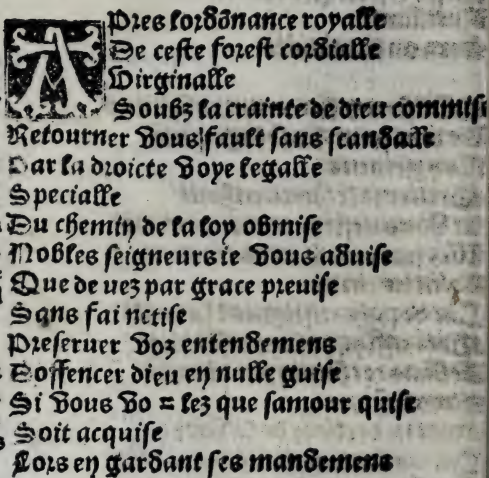 APres lordõnance royalle
De ceste forest cordialle
Virginalle
Soubz la crainte de dieu commis
Retourner vous fault sans scandalle
Par la droicte voye legalle
Specialle
Du chemin de la loy obmise
Nobles seigneurs ie vous aduise
Que de uez par grace preuise
Sans fai nctise
Preseruer voz entendemens
Doffencer dieu en nulle guise
Si vous vo = lez que samour quise
Soit acquise
Lors en gardant ses mandemens